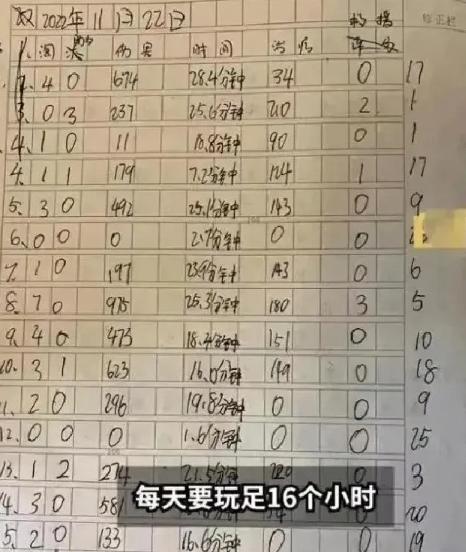 双 2022年11月22日 救援 修正栏
1. 淘汰 助 伤害 时间 治疗
2. 4 0 674 28.4分钟 34 0 17
3. 0 3 237 25.6分钟 210 2 1
4. 1 0 11 10.8分钟 90 0 1
4. 1 1 179 7.2分钟 124 1 17
5. 3 0 492 25.1分钟 143 0 9
6. 0 0 0 2.7分钟 0 0
7. 1 0 197 23.9分钟 143 0 6
8. 7 0 975 25.3分钟 180 3 5
9. 4 0 473 18.4分钟 151 0 10
10. 3 1 623 16.0分钟 149 0 18
1. 2 0 296 19.8分钟 0 0 9
12. 0 0 0 1.6分钟 0 0 25
13. 1 2 274 21.5分钟 0 3
每天要玩足16个小时
14. 3 0 581 0 20
5. 2 0 133 16.6分钟 0 0 19